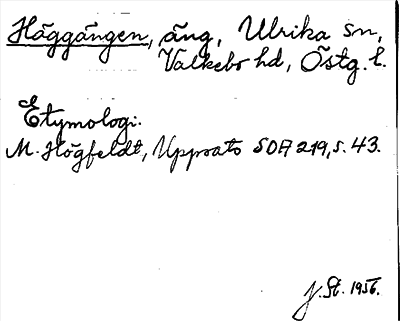 Häggängen, äng, Ulrika sn,
Valkebo hd, Östg. l.
Etymologi:
M. Högfeldt, Uppsats SOA 219, s. 43.
J. St. 1956.